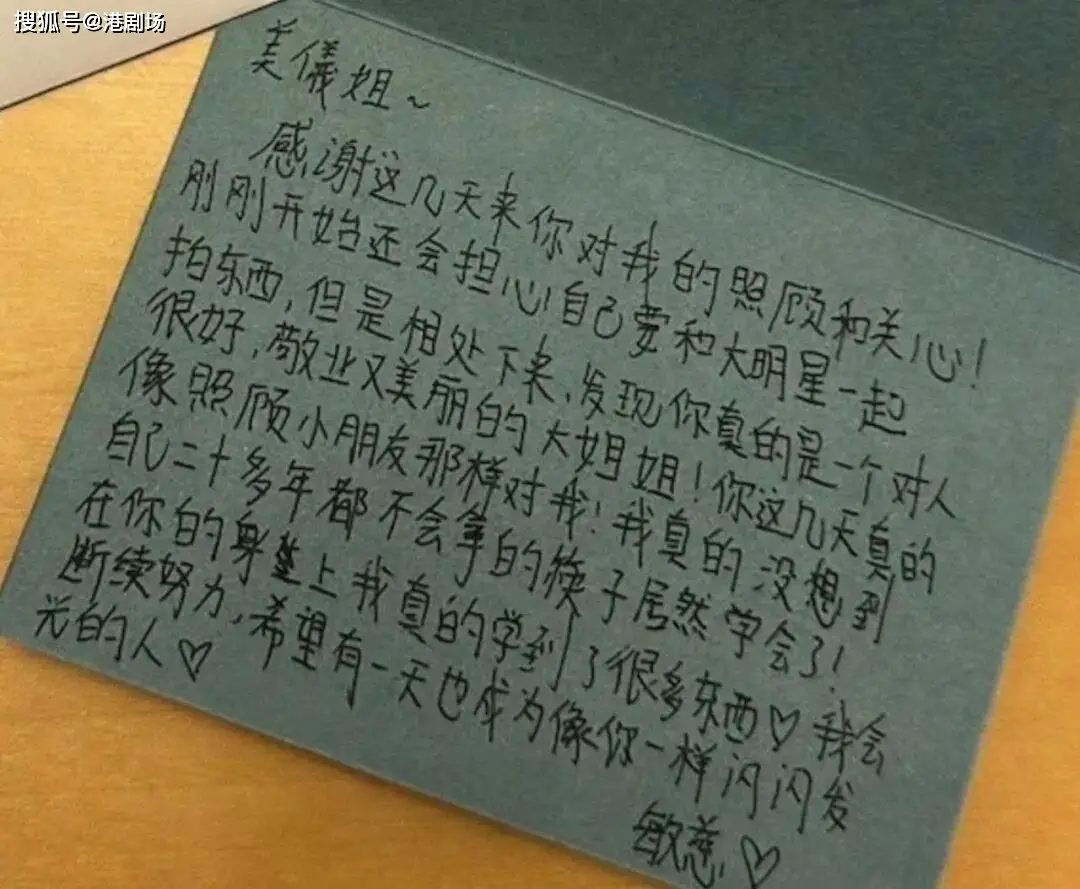 搜狐号@港剧场
美儀姐~
感谢这几天来你对我的照顾和关心!
刚刚开始还会担心自己要和大明星一起
拍东西,但是相处下来,发现你真的是一个对人
很好,敬业又美丽的大姐姐!你这几天真的
像照顾小朋友那样对我!我真的没想到
自己二十多年都不会拿的筷子居然学会了!
在你的身上我真的学到了很多东西♡ 我会
断续努力,希望有一天也成为像你一样闪闪发
光的人♡
敏慈♡